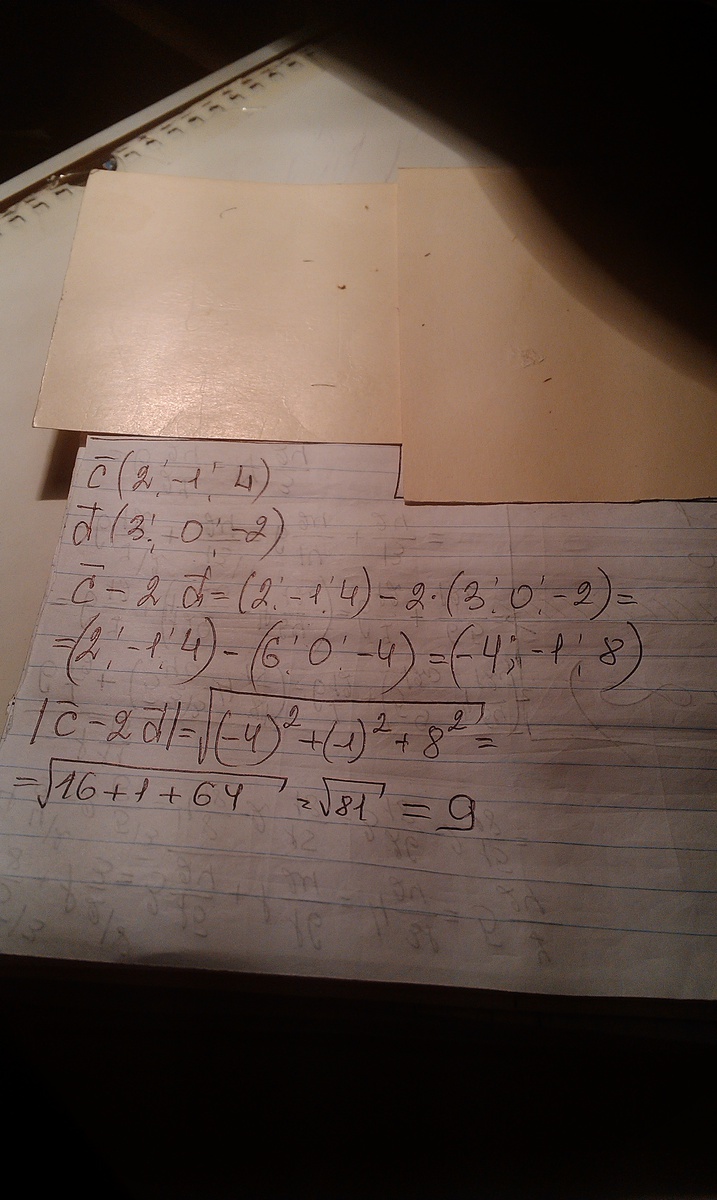 c̅ (2; -1; 4)
d̅ (3; 0; -2)
c̅ - 2 d̅ = (2; -1; 4) - 2·(3; 0; -2) =
= (2; -1; 4) - (6; 0; -4) = (-4; -1; 8)
|c̅ - 2d̅| = √((-4)² + (-1)² + 8²) =
= √(16 + 1 + 64) = √81 = 9